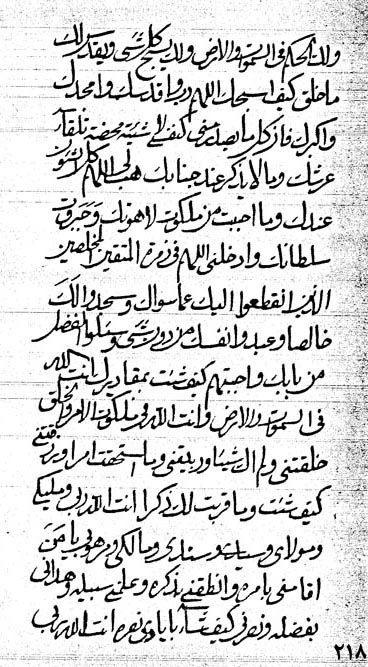 ولك الحكم في السموات والارض ولك يسبح كل شئ ويقدس لك
ما خلق كيف اسبحك اللهم رب واقدسك وامجدك
واكبرك فاز كل ما يصدر مني كيف لاشيئية محضة تلقاء
عرشك وما لا يذكر عند جنابك هب لي اللهم كل
عندك وما احببت من ملكوت لاهوتك وجبروت
سلطانك وادخلني اللهم في زمرة المتقين المخلصين
الذين انقطعوا اليك عما سواك وسجدوا لك
خالصا وعبدوا نفسك من دون شئ وسئلوا الفضل
من بابك واجبتهم كيف شئت بمقاديرك انت الله
في السموات والارض وانت الله ربي ملكوت الامر والخلق
خلقتني ولم اك شيئا وربيتني وما استحققت امرا ورزقتني
كيف شئت وما قربت لك ذكرا انت الله ربي ومليكي
ومولاي وسيدي وسندي ومالكي ومن هو لي يا من
اقامني بامره وانطقني بذكره وعلمني سبيله وهداني
بفضله ونصرني كيف شاء بايادي نصره انت الله ربي
٢١٨